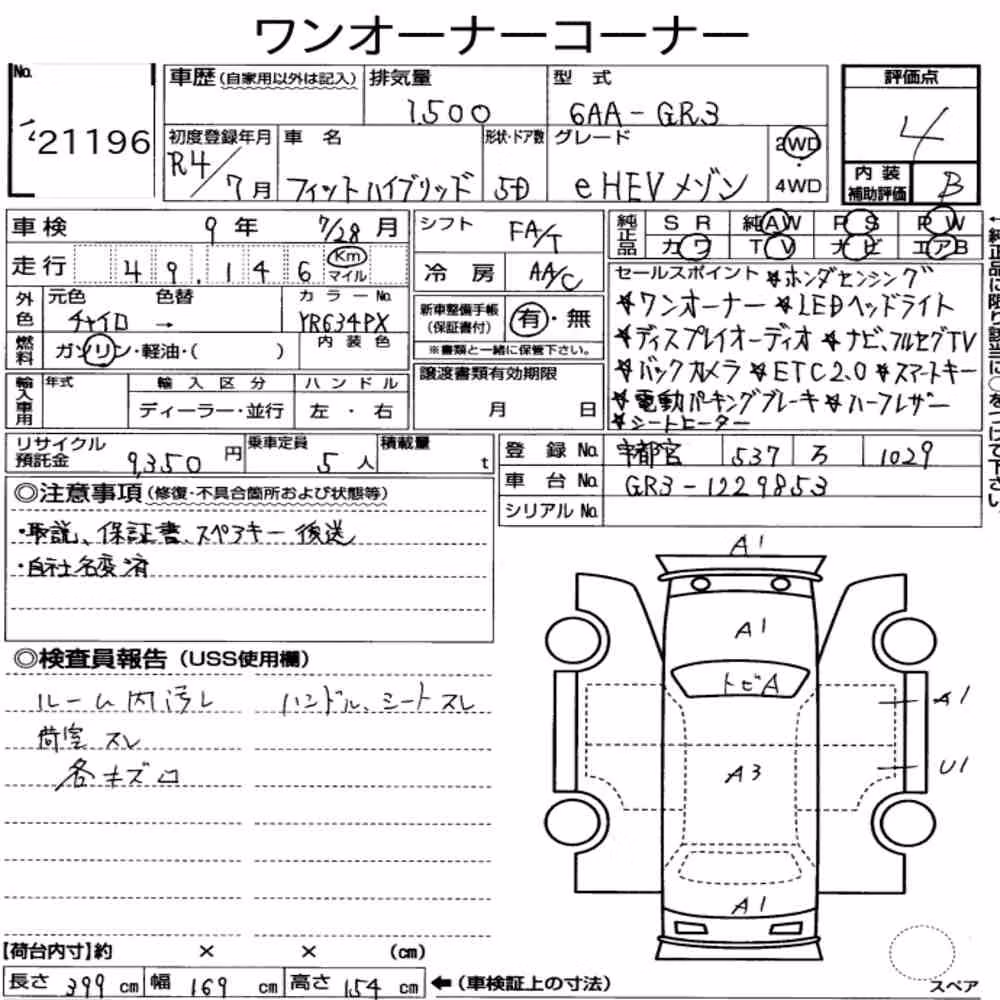 ワンオーナーコーナー
No.
21196
車歴 (自家用以外は記入)
排気量
1,500
型式
6AA-GR3
初度登録年月
R4/7月
車名
フィットハイブリッド
形状・ドア数
5D
グレード
e HEVメゾン
2WD
・
4WD
評価点
4
内装
補助評価
B
車検 9年 7/28月
走行 49,146 Km マイル
シフト FA/T
冷房 AA/C
純正品 SR 純AW PS PW
カワ TV ナビ エアB
←純正品に限り該当に○をつけて下さい。
外色
元色 色替 カラーNo.
チャイロ → YR634PX
内装色
燃料
ガソリン・軽油・( )
新車整備手帳
(保証書付)
有・無
※書類と一緒に保管下さい。
セールスポイント ★ホンダセンシング
★ワンオーナー ★LEDヘッドライト
★ディスプレイオーディオ ★ナビ、フルセグTV
★バックカメラ ★ETC2.0 ★スマートキー
★電動パーキングブレーキ ★ハーフレザー
★シートヒーター
輸入車用
年式 輸入区分 ハンドル
ディーラー・並行 左・右
譲渡書類有効期限
月 日
リサイクル
預託金 9,350円
乗車定員 5人
積載量 t
登録No. 宇都宮 537 1029
車台No. GR3-1229853
シリアルNo.
◎注意事項 (修復・不具合箇所および状態等)
・取説、保証書、スペアキー後送
・自社名変済
◎検査員報告 (USS使用欄)
ルーム内汚レ ハンドル、シートスレ
荷室スレ
各キズ
A1
A1
トビA
A1
A3
U1
A1
【荷台内寸】約 × × (cm)
長さ 399 cm 幅 169 cm 高さ 154 cm ←(車検証上の寸法)
スペア